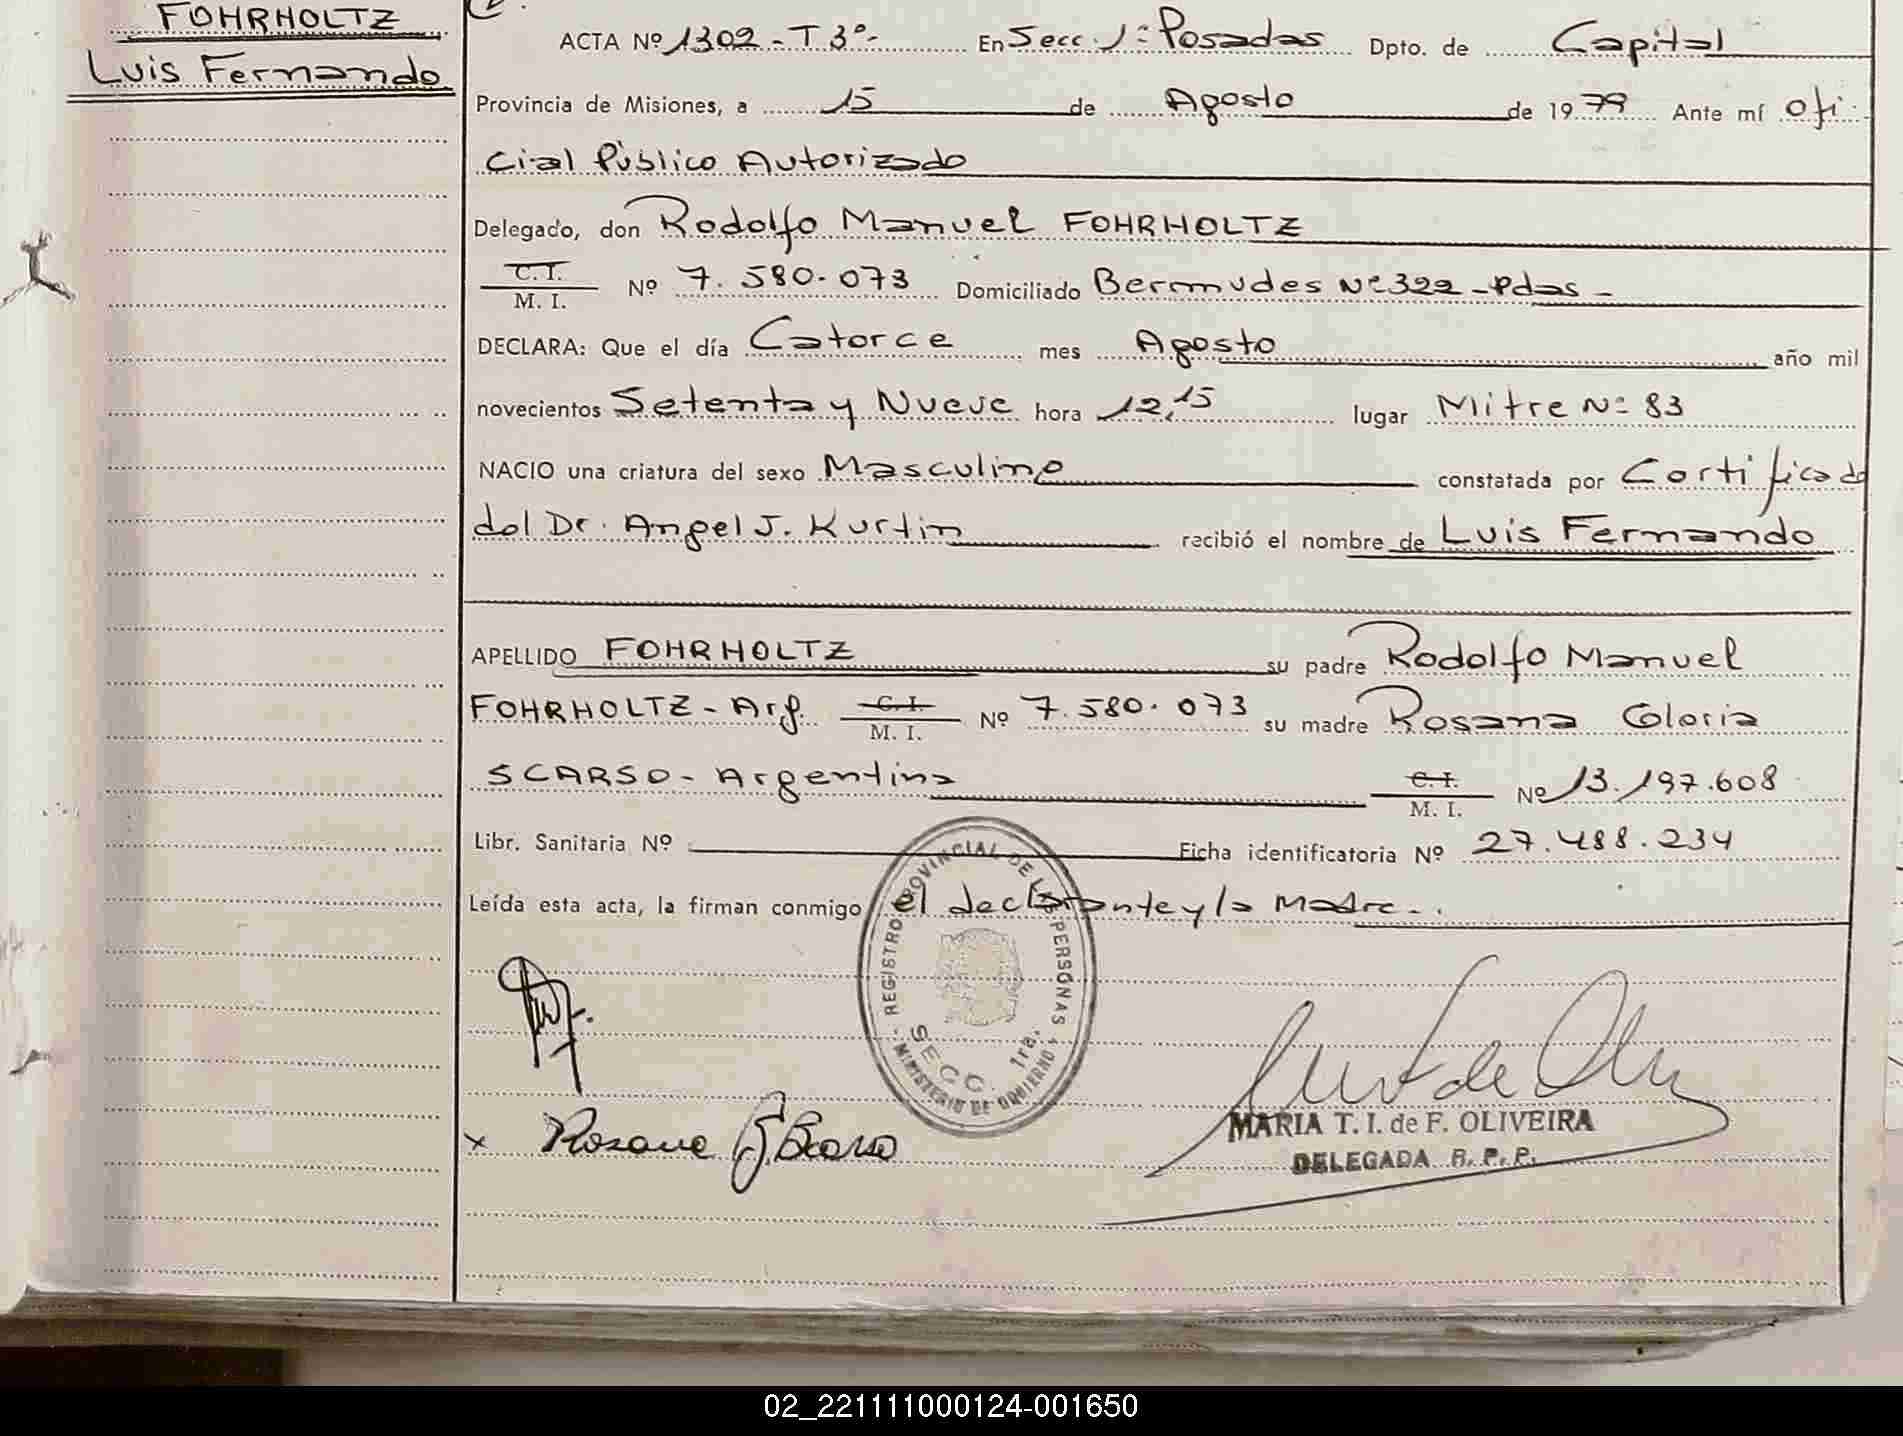 FOHRHOLTZ
Luis Fernando
ACTA Nº 1302 - T 3º - En Secc. 1ª Posadas Dpto. de Capital
Provincia de Misiones, a 15 de Agosto de 1979 Ante mí Ofi
cial Público Autorizado
Delegado, don Rodolfo Manuel FOHRHOLTZ
C.I.
M. I. Nº 7.580.073 Domiciliado Bermudes Nº 322 - Pdas -
DECLARA: Que el día Catorce mes Agosto año mil
novecientos Setenta y Nueve hora 12,15 lugar Mitre Nº 83
NACIO una criatura del sexo Masculino constatada por Certificado
del Dr. Angel J. Kurtin recibió el nombre de Luis Fernando
APELLIDO FOHRHOLTZ su padre Rodolfo Manuel
FOHRHOLTZ - Arg. C.I.
M. I. Nº 7.580.073 su madre Rosana Gloria
SCARSO - Argentina C.I.
M. I. Nº 13.197.608
Libr. Sanitaria Nº Ficha identificatoria Nº 27.488.234
Leída esta acta, la firman conmigo el declarante y la Madre..
REGISTRO PROVINCIAL DE LAS PERSONAS
SECC. 1ra.
MINISTERIO DE GOBIERNO
x Rosana G. Scarso
MARIA T. I. de F. OLIVEIRA
DELEGADA R. P. P.
02_221111000124-001650